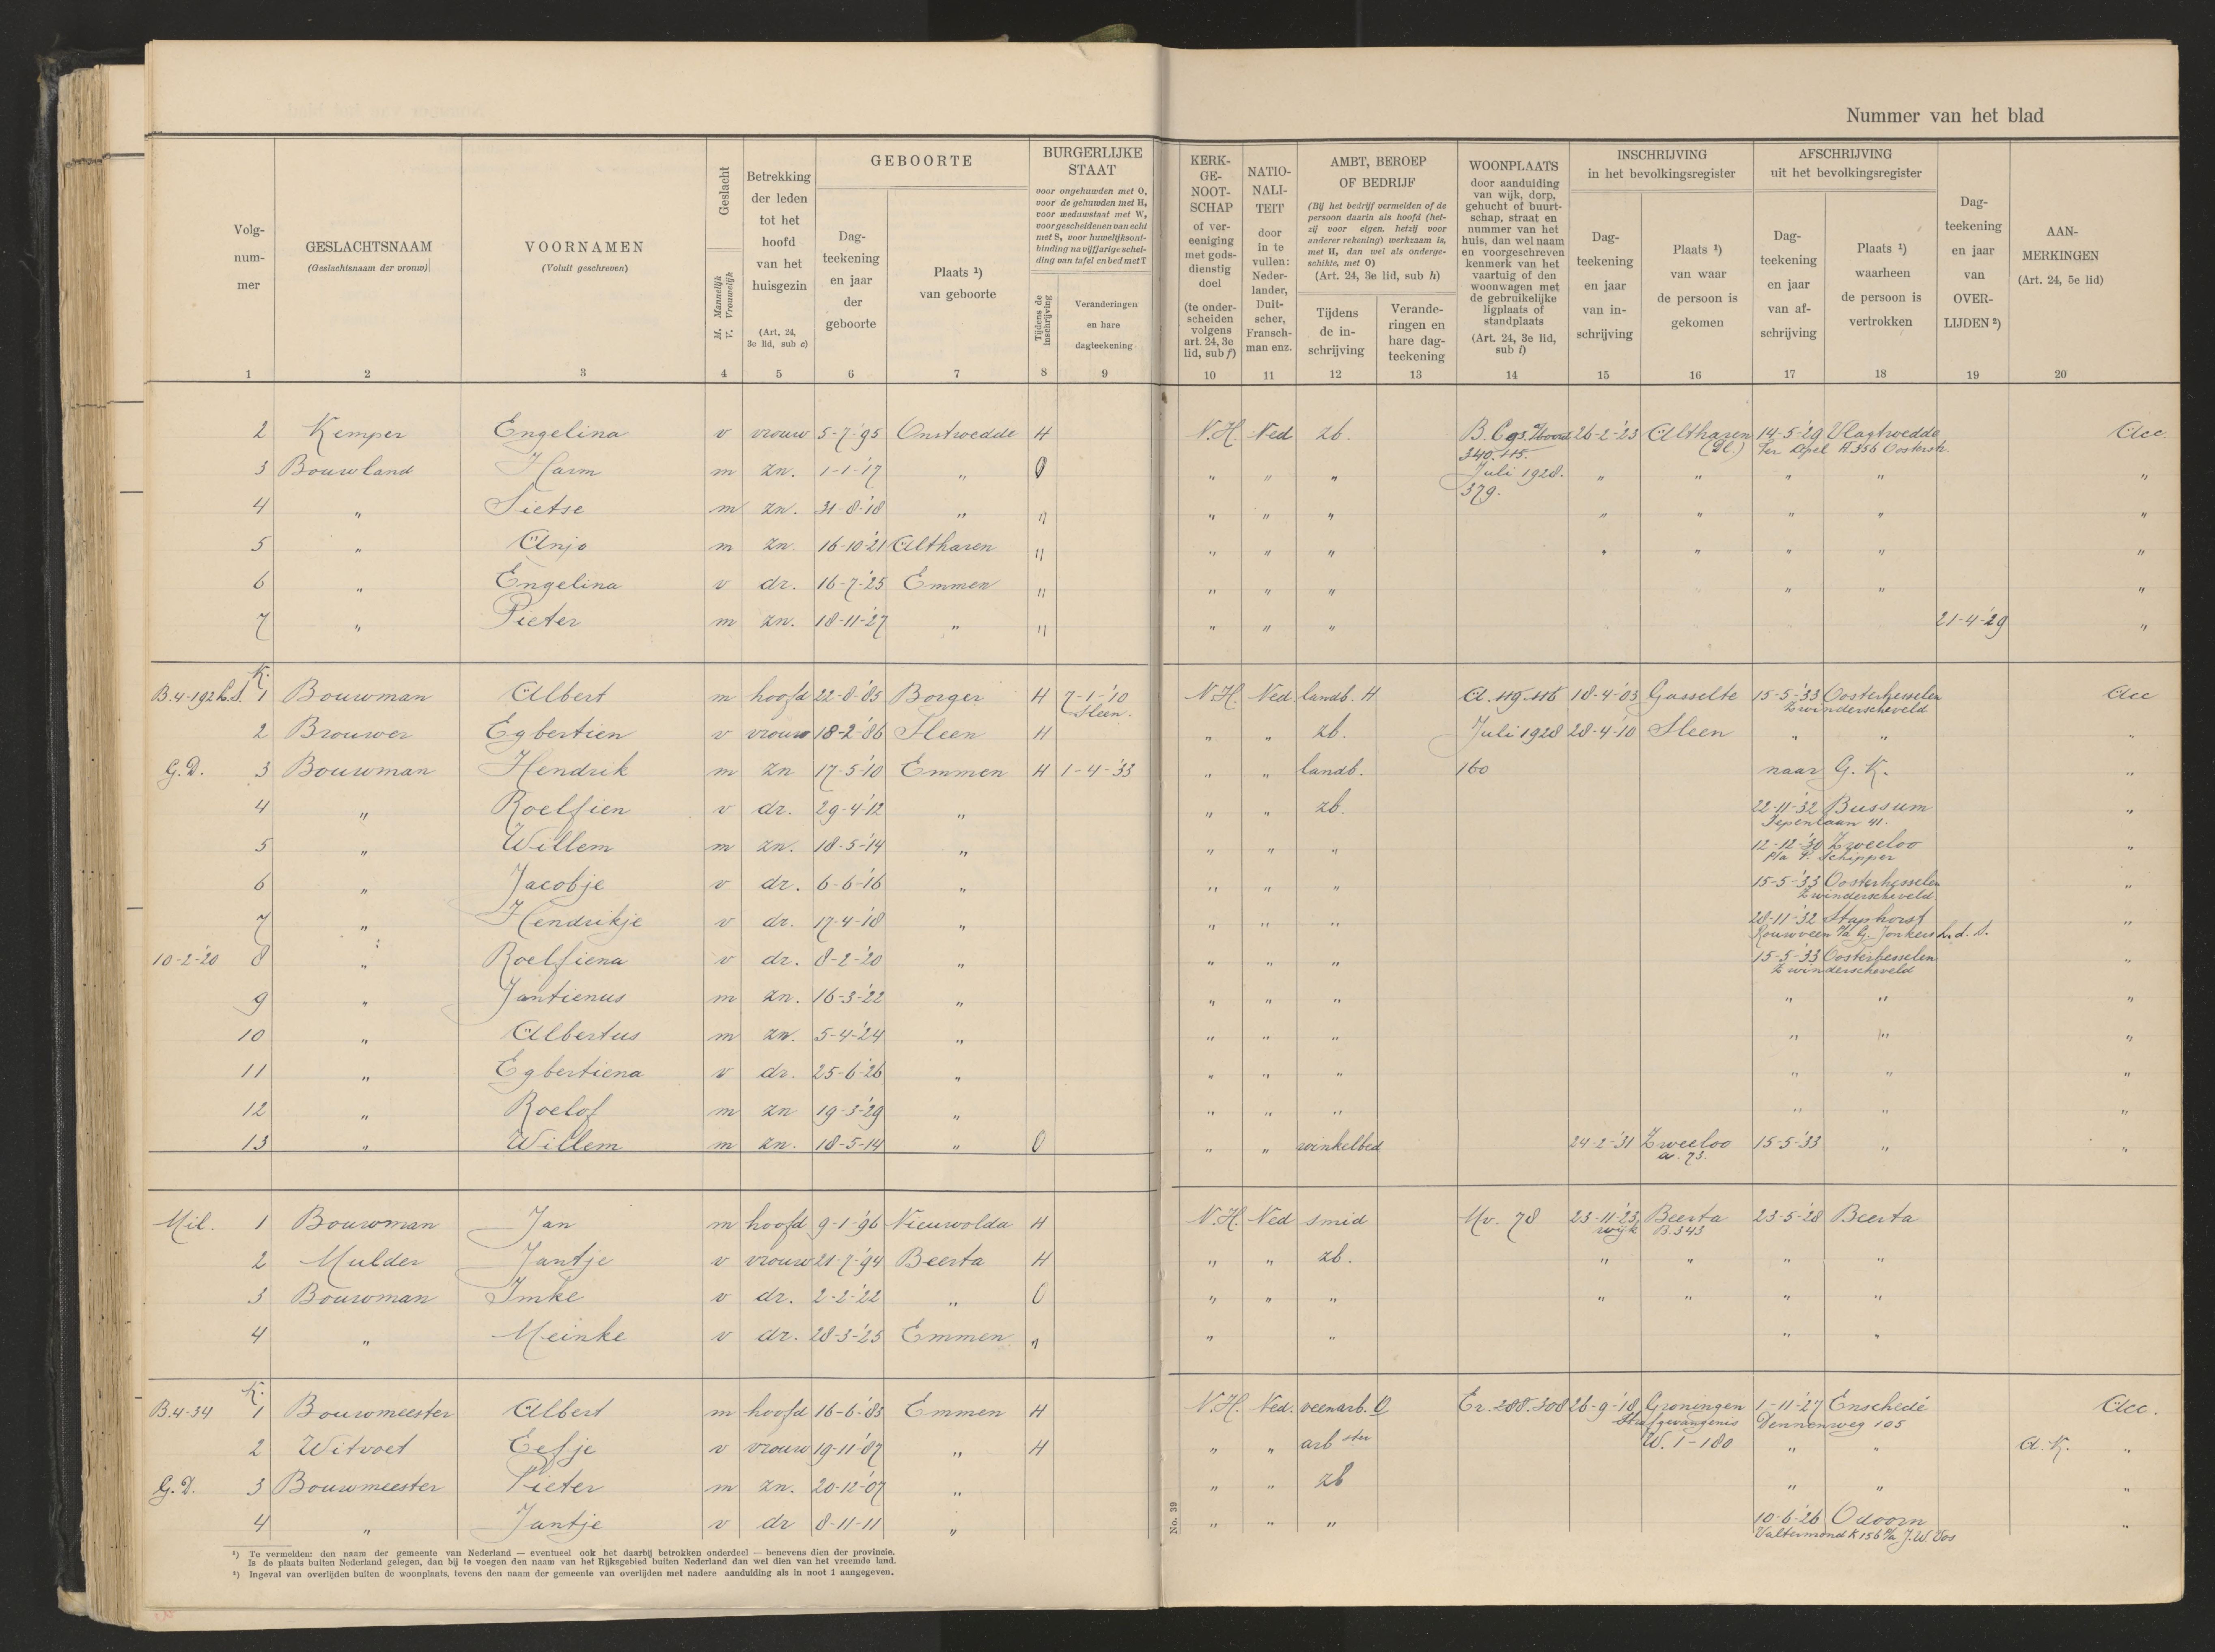 Nummer van het blad
Volg-
num-
mer
GESLACHTSNAAM
(Geslachtsnaam der vrouw)
VOORNAMEN
(Voluit geschreven)
Geslacht
M. Mannelijk
V. Vrouwelijk
Betrekking
der leden
tot het
hoofd
van het
huisgezin
(Art. 24,
3e lid, sub c)
GEBOORTE
Dag-
teekening
en jaar
der
geboorte
Plaats ¹)
van geboorte
BURGERLIJKE
STAAT
voor ongehuwden met O,
voor de gehuwden met H,
voor weduwstaat met W,
voor gescheidenen van echt
met S, voor huwelijksont-
binding na vijfjarige schei-
ding van tafel en bed met T
Tijdens de
inschrijving
Veranderingen
en hare
dagteekening
KERK-
GE-
NOOT-
SCHAP
of ver-
eeniging
met gods-
dienstig
doel
(te onder-
scheiden
volgens
art. 24, 3e
lid, sub f)
NATIO-
NALI-
TEIT
door
in te
vullen:
Neder-
lander,
Duit-
scher,
Fransch-
man enz.
AMBT, BEROEP
OF BEDRIJF
(Bij het bedrijf vermelden of de
persoon daarin als hoofd (het-
zij voor eigen, hetzij voor
anderer rekening) werkzaam is,
met H, dan wel als onderge-
schikte, met O)
(Art. 24, 3e lid, sub h)
Tijdens
de in-
schrijving
Verande-
ringen en
hare dag-
teekening
WOONPLAATS
door aanduiding
van wijk, dorp,
gehucht of buurt-
schap, straat en
nummer van het
huis, dan wel naam
en voorgeschreven
kenmerk van het
vaartuig of den
woonwagen met
de gebruikelijke
ligplaats of
standplaats
(Art. 24, 3e lid,
sub i)
INSCHRIJVING
in het bevolkingsregister
Dag-
teekening
en jaar
van in-
schrijving
Plaats ¹)
van waar
de persoon is
gekomen
AFSCHRIJVING
uit het bevolkingsregister
Dag-
teekening
en jaar
van af-
schrijving
Plaats ¹)
waarheen
de persoon is
vertrokken
Dag-
teekening
en jaar
van
OVER-
LIJDEN ²)
AAN-
MERKINGEN
(Art. 24, 5e lid)
1 2 3 4 5 6 7 8 9 10 11 12 13 14 15 16 17 18 19 20
2 Kemper Engelina v vrouw 5-7-'95 Onstwedde H N.H. Ned zb. 26-2-'23 Altharen 14-5-'29 Vlagtwedde Acc.
340. 115. Ter Apel A 356 Oosterstr.
3 Bouwland Harm m zn. 1-1-'17 " O " " " Juli 1928. " " " " "
379.
4 " Sietse m zn. 31-8-'18 " " " " " " " " " "
5 " Anjo m zn 16-10-'21 Altharen " " " " " " " " "
6 " Engelina v dr. 16-7-'25 Emmen " " " " " " "
7 " Pieter m zn. 18-11-'27 " " " " " 21-4-'29 "
K.
B.4-192 h.s. 1 Bouwman Albert m hoofd 22-8-'85 Borger H 7-1-'10 N.H. Ned landb. H 18-4-'03 Gasselte 15-5-'33 Oosterhesselen Acc
Sleen. Zwinderscheveld
2 Brouwer Egbertien v vrouw 18-2-'86 Sleen H " " zb. Juli 1928 28-4-'10 Sleen " " "
G.D. 3 Bouwman Hendrik m zn 17-5-'10 Emmen H 1-4-'33 " " landb. 160 naar G.K. "
4 " Roelfien v dr. 29-4-'12 " " " zb. 22-11-'32 Bussum "
Iepenlaan 41.
5 " Willem m zn. 18-5-'14 " " " " 12-12-'30 Zweeloo "
p/a P. Schipper
6 " Jacobje v dr. 6-6-'16 " " " " 15-5-'33 Oosterhesselen "
Zwinderscheveld
7 " Hendrikje v dr. 17-4-'18 " " " " 28-11-'32 Staphorst "
Rouwveen p/a G. Jonkers h.d.S.
10-2-'20 8 " Roelfiena v dr. 8-2-'20 " " " " 15-5-'33 Oosterhesselen "
Zwinderscheveld
9 " Jantienus m zn. 16-3-'22 " " " " " " "
10 " Albertus m zn. 5-4-'24 " " " " " " "
11 " Egbertiena v dr. 25-6-'26 " " " " " " "
12 " Roelof m zn 19-3-'29 " " " " " " "
13 " Willem m zn. 18-5-'14 " O " " winkelbed 24-2-'31 Zweeloo 15-5-'33 " "
a. 73.
Mil. 1 Bouwman Jan m hoofd 9-1-'96 Nieuwolda H N.H. Ned smid Mv. 78 23-11-'23 Beerta 23-5-'28 Beerta
wijk B. 343
2 Mulder Jantje v vrouw 21-7-'94 Beerta H " " zb. " " " "
3 Bouwman Imke v dr. 2-2-'22 " O " " " " " " "
4 " Meinke v dr. 28-3-'25 Emmen " " " " "
K.
B.4-34 1 Bouwmeester Albert m hoofd 16-6-'83 Emmen H N.H. Ned. veenarb. O Er. 288. 308 26-9-'18 Groningen 1-11-'27 Enschedé Acc.
Strafgevangenis Dennenweg 105
2 Witvoet Eefje v vrouw 19-11-'87 " H " " arb ster W. 1-180 " " A.K. "
G.D. 3 Bouwmeester Pieter m zn. 20-12-'07 " " " zb " " "
4 " Jantje v dr 8-11-11 " " " " 10-6-'26 Odoorn "
Valtermond K 156 p/a J.W. Vos
No. 39
¹) Te vermelden: den naam der gemeente van Nederland — eventueel ook het daarbij betrokken onderdeel — benevens dien der provincie.
Is de plaats buiten Nederland gelegen, dan bij te voegen den naam van het Rijksgebied buiten Nederland dan wel dien van het vreemde land.
²) Ingeval van overlijden buiten de woonplaats, tevens den naam der gemeente van overlijden met nadere aanduiding als in noot 1 aangegeven.